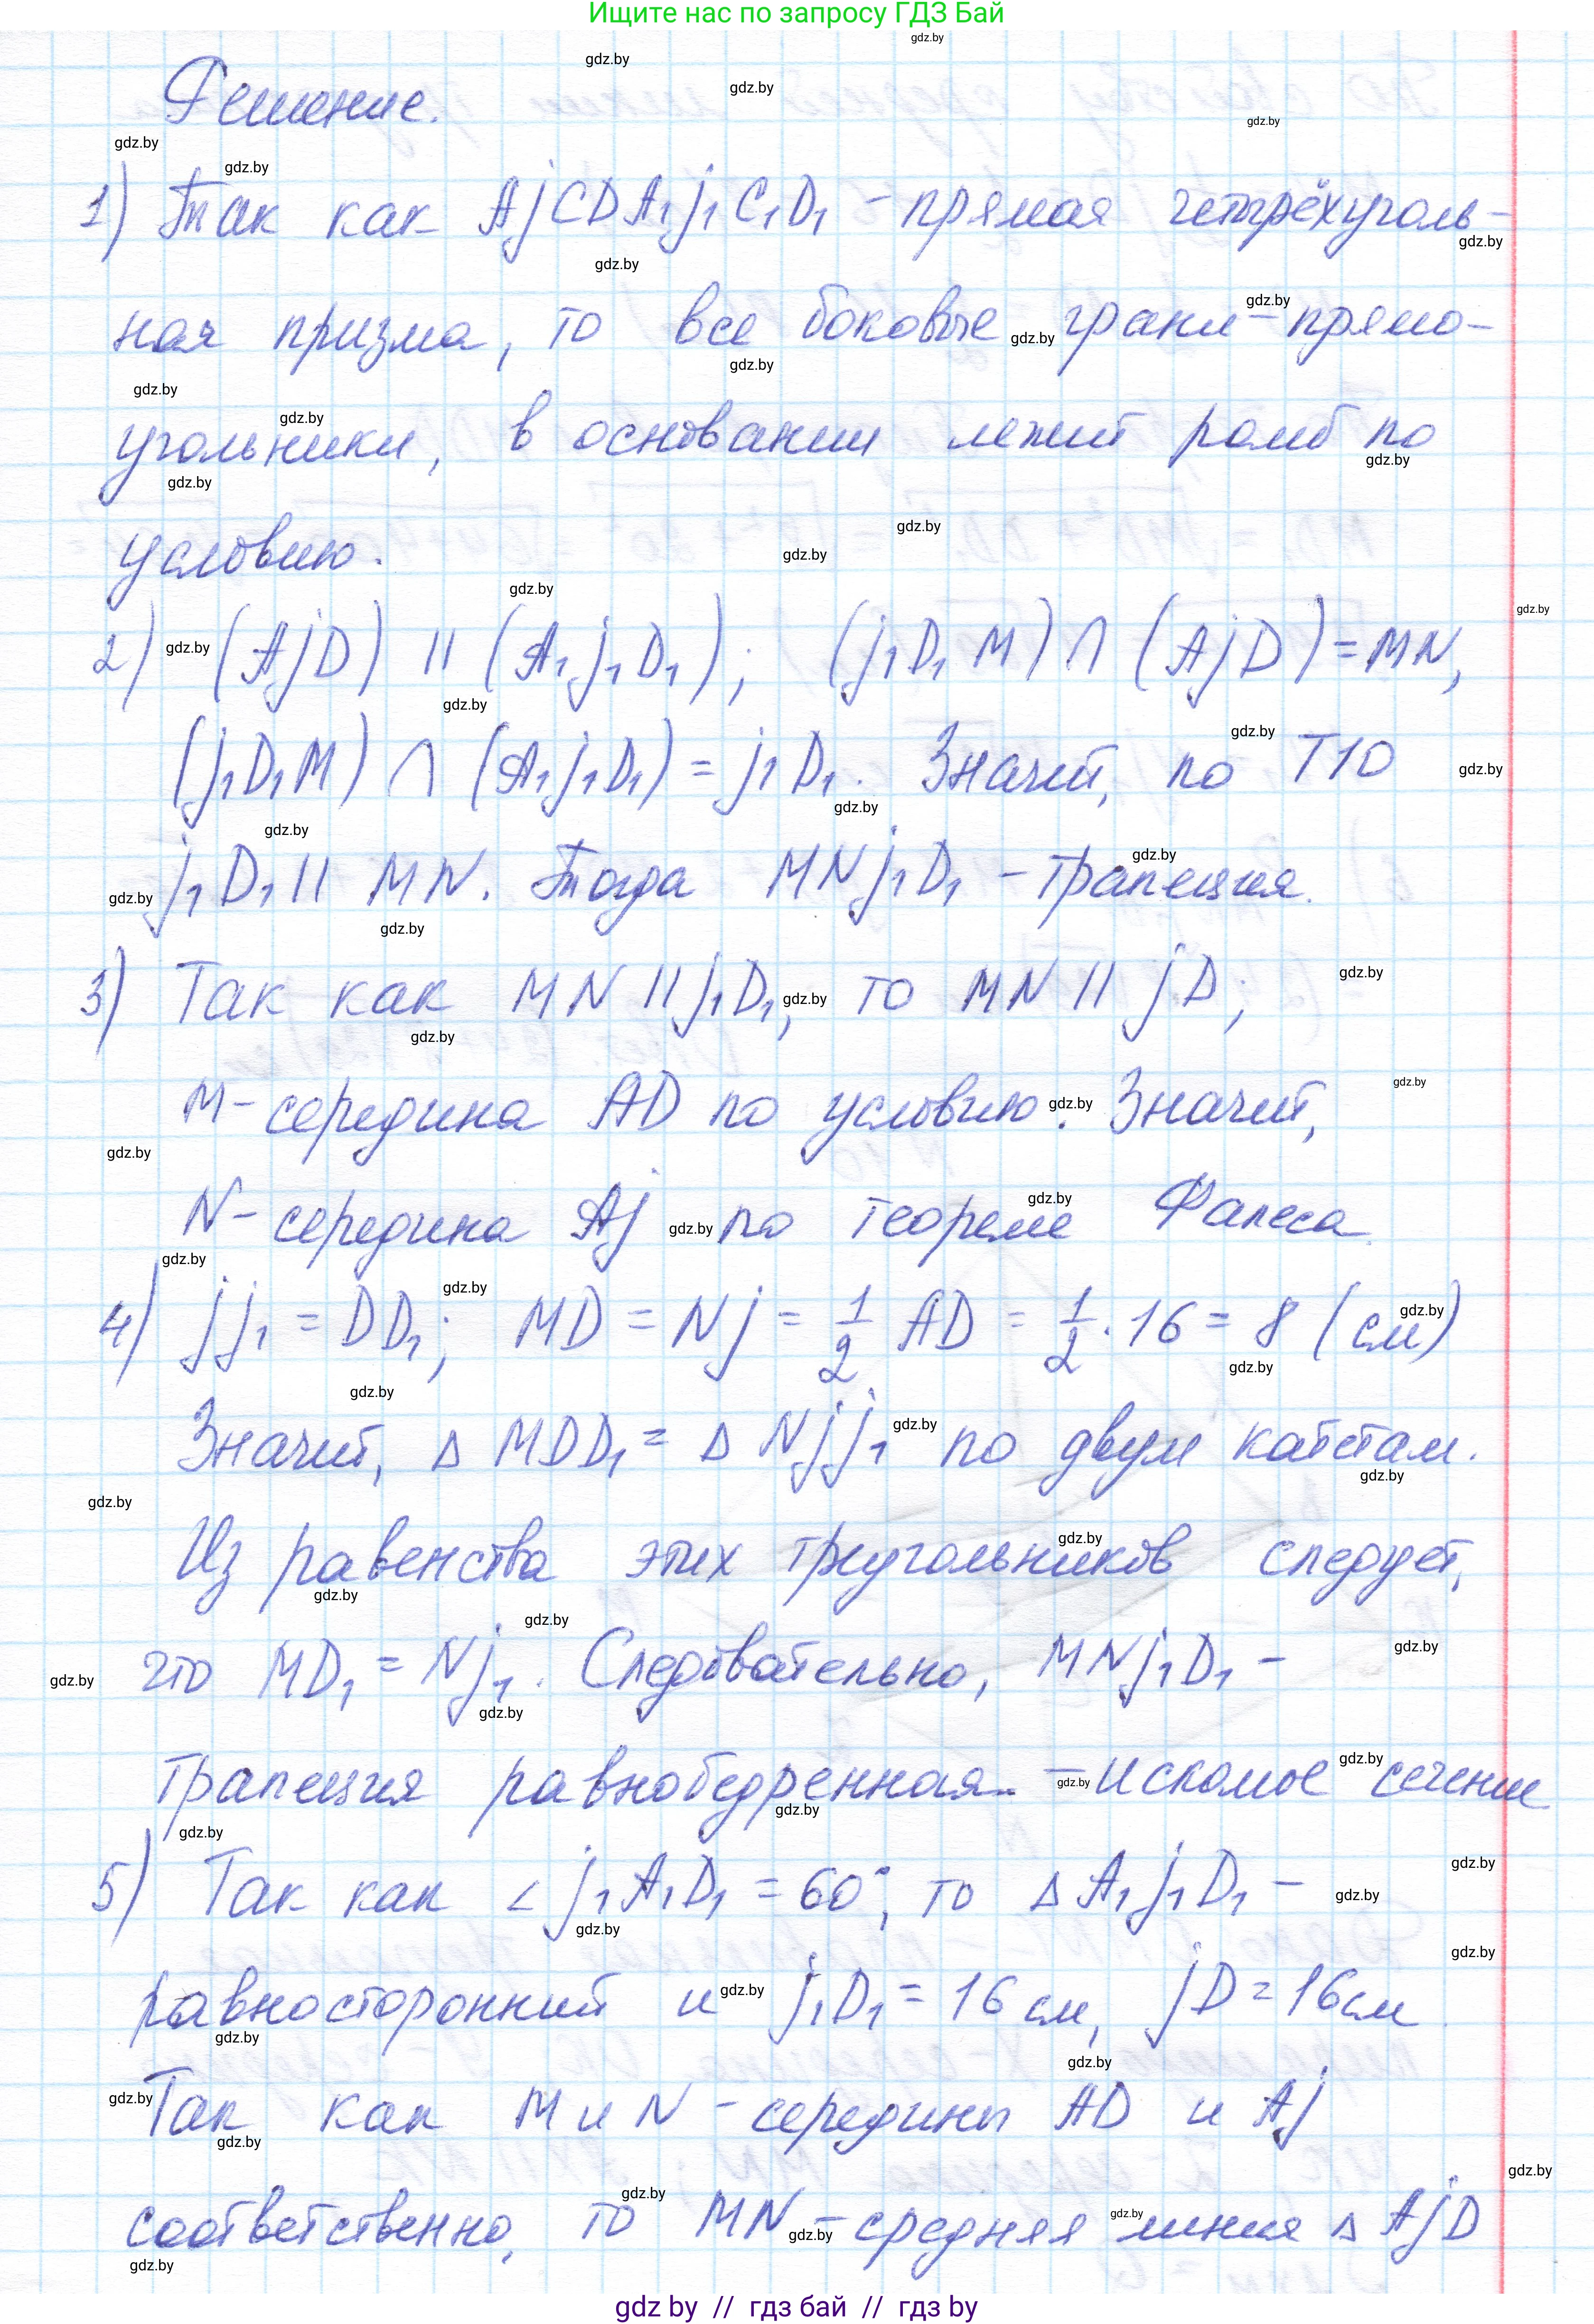 Ищите нас по запросу ГДЗ Бай
Решение.
1) Так как AjCDA₁j₁C₁D₁ - прямая четырёхуголь-
ная призма, то все боковые грани - прямо-
угольники, в основании лежит ромб по
условию.
2) (AjD) || (A₁j₁D₁); (j₁D₁M) ∩ (AjD) = MN,
(j₁D₁M) ∩ (A₁j₁D₁) = j₁D₁. Значит, по Т10
j₁D₁ || MN. Тогда MNj₁D₁ - трапеция.
3) Так как MN || j₁D₁, то MN || jD;
M - середина AD по условию. Значит,
N - середина Aj по теореме Фалеса.
4) jj₁ = DD₁; MD = Nj = 1/2 AD = 1/2 · 16 = 8 (см)
Значит, Δ MDD₁ = Δ Njj₁ по двум катетам.
Из равенства этих треугольников следует,
что MD₁ = Nj₁. Следовательно, MNj₁D₁ -
трапеция равнобедренная - искомое сечение
5) Так как ∠j₁A₁D₁ = 60°, то Δ A₁j₁D₁ -
равносторонний и j₁D₁ = 16 см, jD = 16 см
Так как M и N - середины AD и Aj
соответственно, то MN - средняя линия Δ AjD
gdz by // гдз бай // гдз by